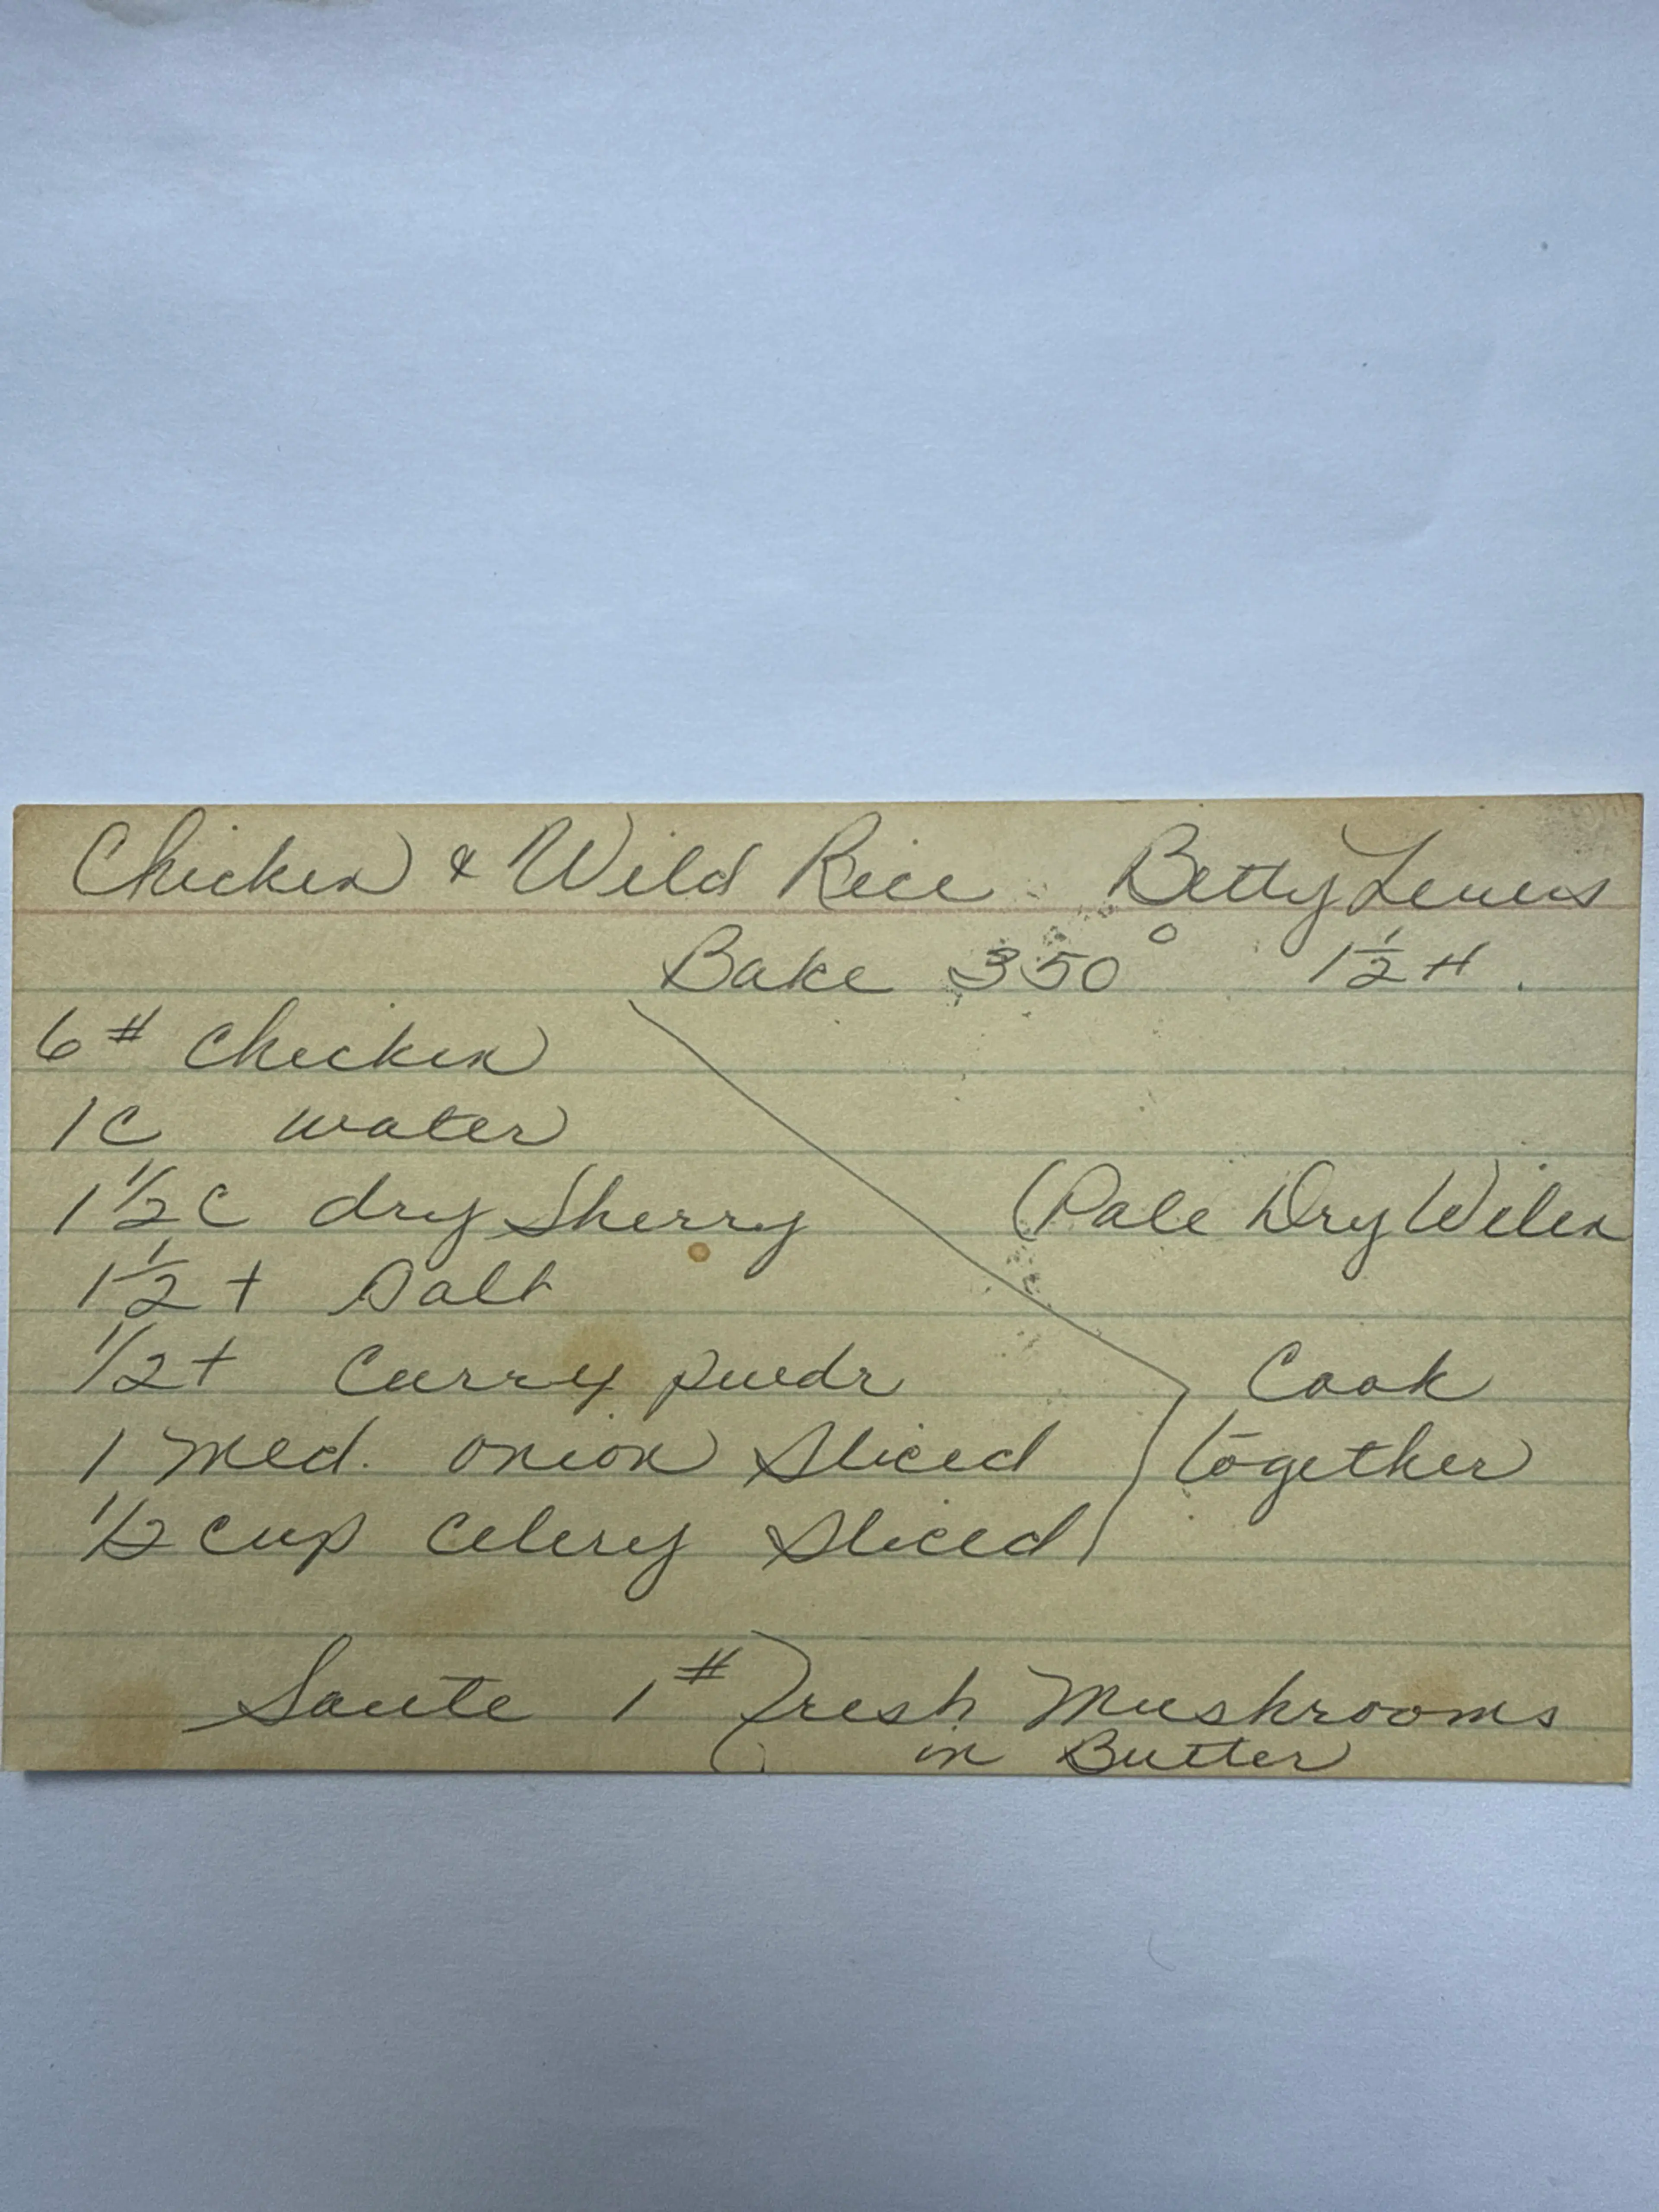 Chicken & Wild Rice Betty Lewis
Bake 350° 1½ H.
6# Chicken
1C water
1½ C dry Sherry (Pale Dry
1½ t Salt
½ t Curry powdr Cook
1 Med. onion Sliced together
½ cup Celery Sliced
Saute 1# Fresh Mushrooms
in Butter